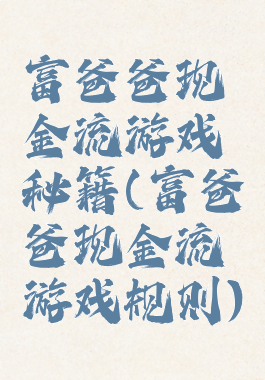 富爸爸现
金流游戏
秘籍(富爸
爸现金流
游戏规则)